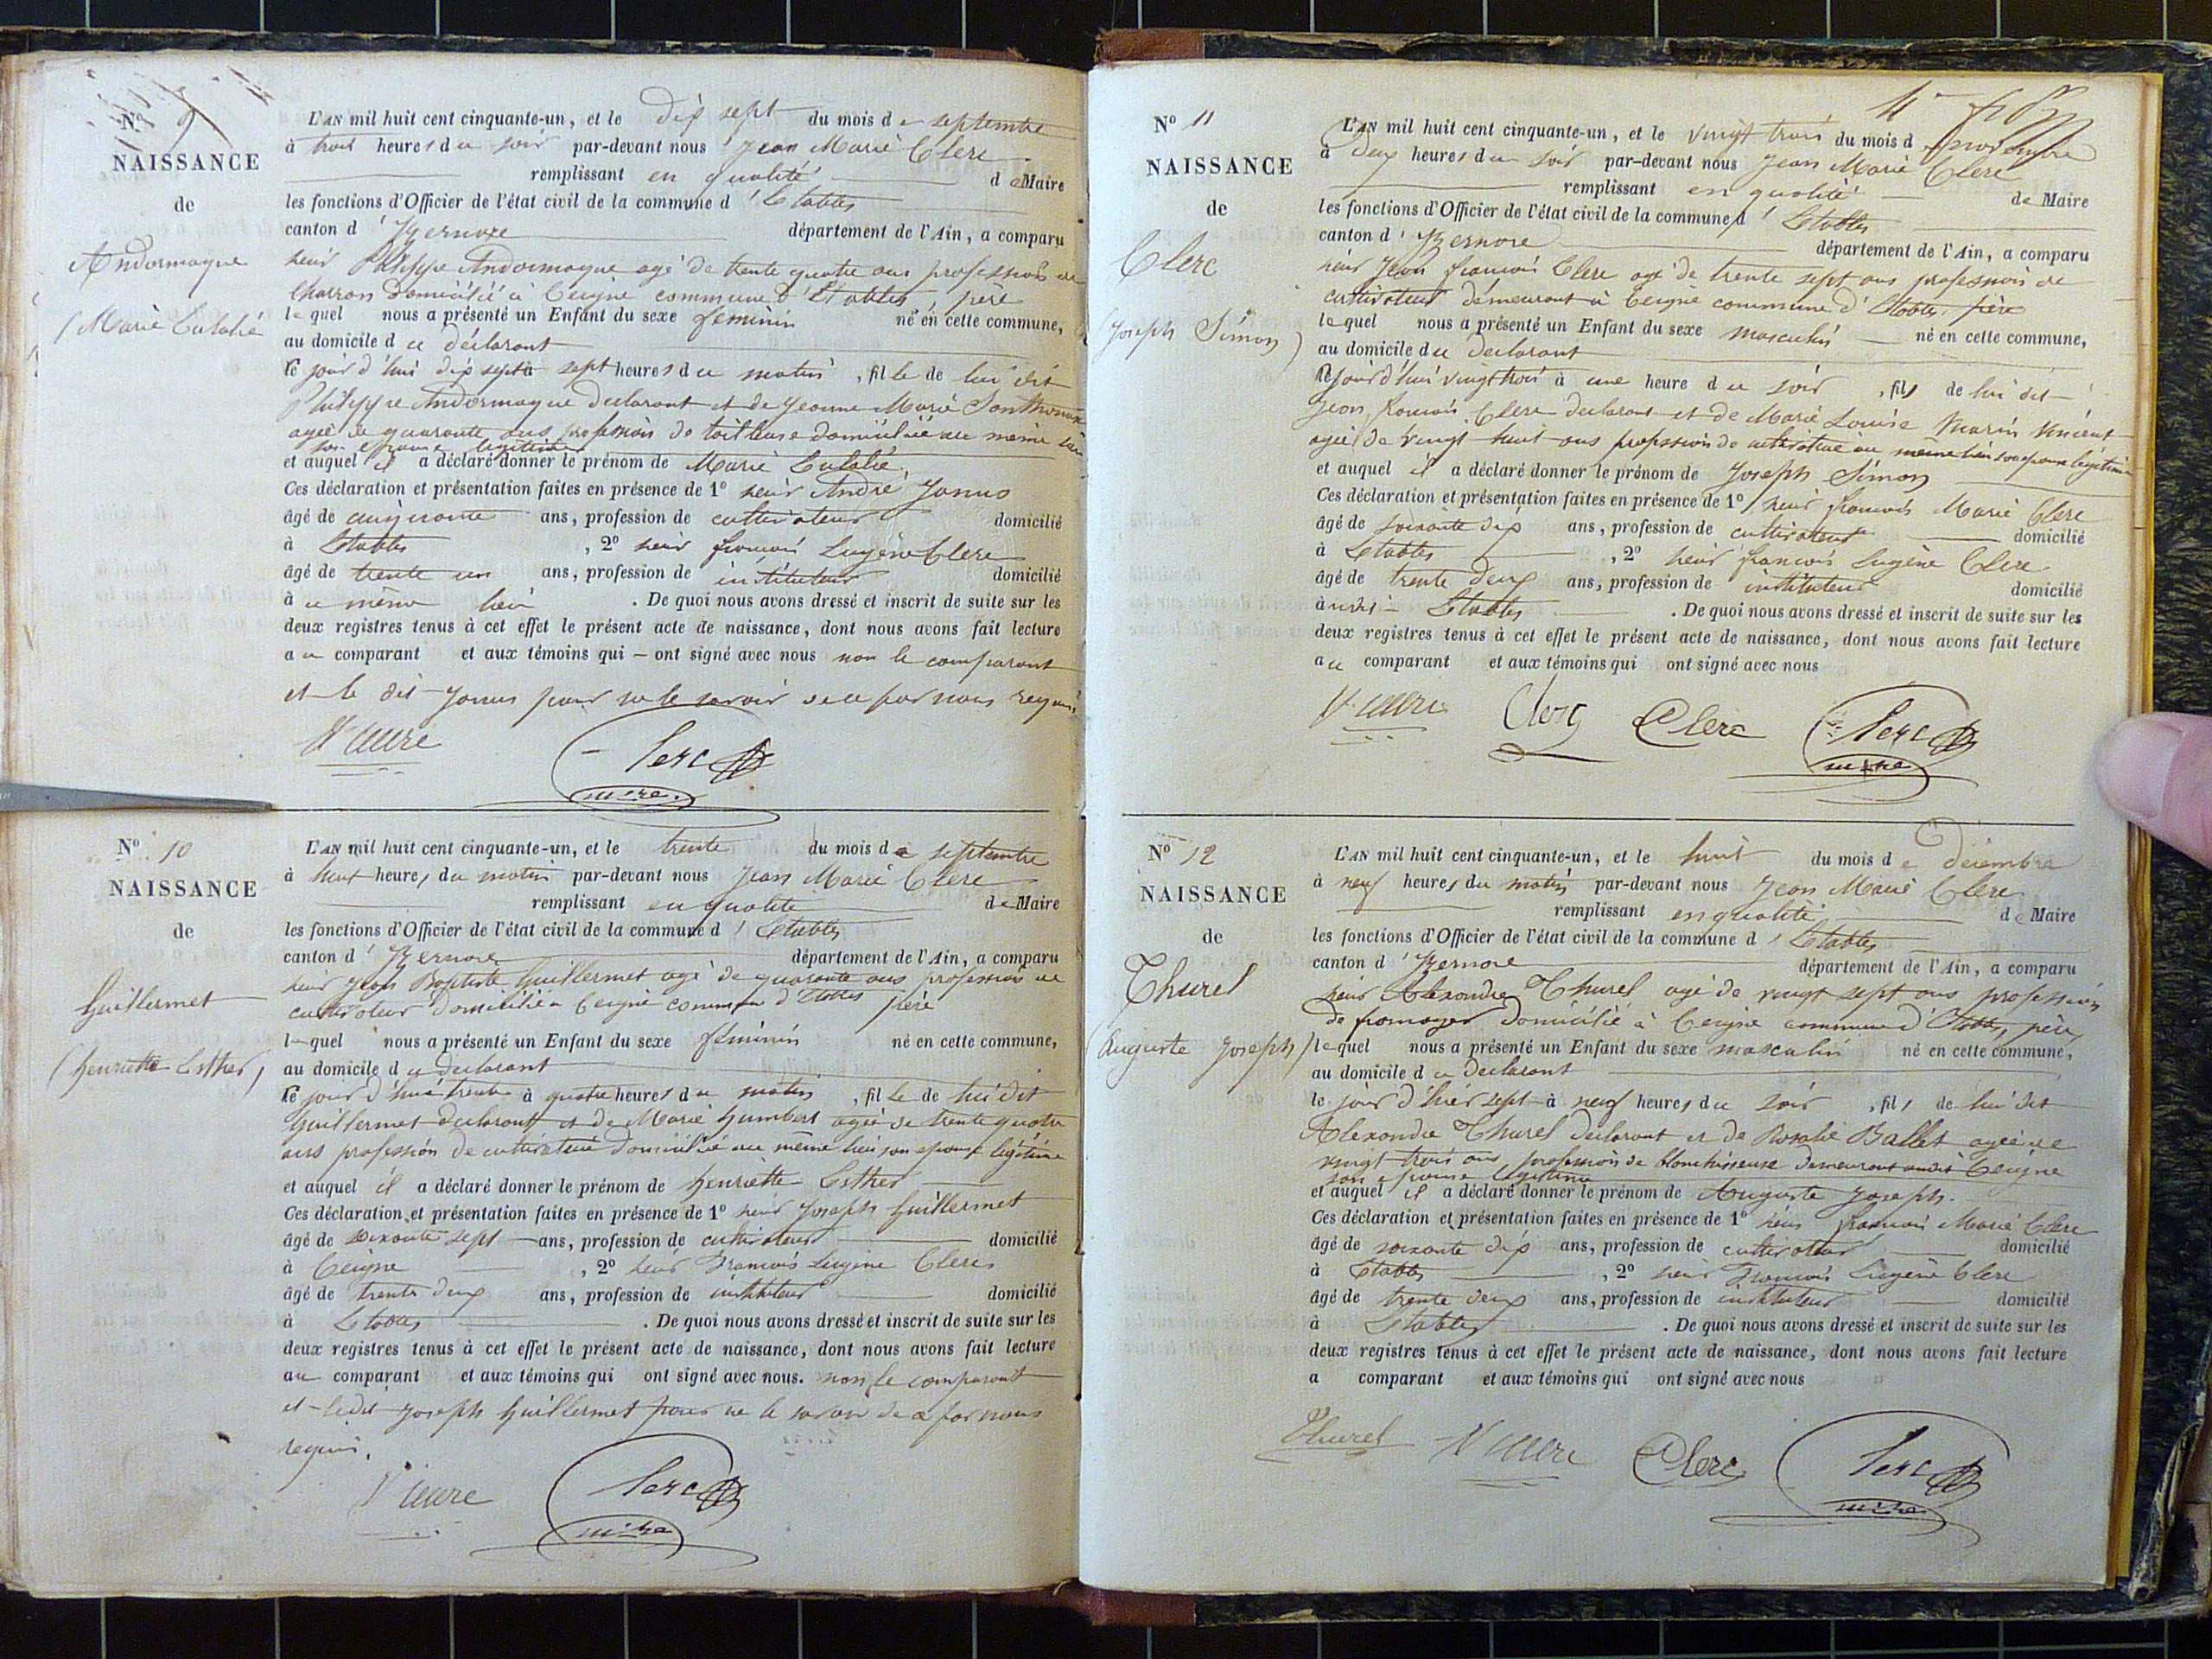 Nº 9
NAISSANCE
de
Andormaque
(Marie Eulalie
L'AN mil huit cent cinquante-un, et le dix sept du mois de septembre
à trois heures du soir par-devant nous Jean Marie Clerc
remplissant en qualité de Maire
les fonctions d'Officier de l'état civil de la commune d'Etables
canton d'Izernore département de l'Ain, a comparu
sieur Philippe Andormaque agé de trente quatre ans profession de
charron domicilié à Ceigne commune d'Etables, père
lequel nous a présenté un Enfant du sexe féminin né en cette commune,
au domicile du déclarant
le jour d'hui dix sept à sept heures du matin, fille de lui dit
Philippe Andormaque declarant et de Jeanne Marie
agée de quarante ans profession de tailleuse domiciliée au même lieu
son épouse légitime
et auquel il a déclaré donner le prénom de Marie Eulalie.
Ces déclaration et présentation faites en présence de 1º sieur André Janus
âgé de cinquante ans, profession de cultivateur domicilié
à Etables, 2º sieur françois Eugène Clerc
âgé de trente un ans, profession de instituteur domicilié
à u même lieu. De quoi nous avons dressé et inscrit de suite sur les
deux registres tenus à cet effet le présent acte de naissance, dont nous avons fait lecture
au comparant et aux témoins qui – ont signé avec nous non le comparant
et le dit Janus pour ne le savoir de ce par nous requis
Clerc
mire
Nº 10
NAISSANCE
de
Guillermet
(henriette Esther)
L'AN mil huit cent cinquante-un, et le trente du mois de septembre
à huit heures du matin par-devant nous Jean Marie Clerc
remplissant en qualité de Maire
les fonctions d'Officier de l'état civil de la commune d'Etables
canton d'Izernore département de l'Ain, a comparu
sieur Jean Baptiste Guillermet agé de quarante ans profession de
cultivateur domicilié à Ceigne commune d'Etables père
lequel nous a présenté un Enfant du sexe féminin né en cette commune,
au domicile du declarant
le jour d'hui trente à quatre heures du matin, fille de lui dit
Guillermet declarant et de Marie humbert agée de trente quatre
ans profession de cultivatrice domiciliée au même lieu son epouse légitime
et auquel il a déclaré donner le prénom de henriette Esther
Ces déclaration et présentation faites en présence de 1º sieur Joseph Guillermet
âgé de soixante sept ans, profession de cultivateur domicilié
à Ceigne, 2º sieur François Eugène Clerc
âgé de trente deux ans, profession de instituteur domicilié
à Etables. De quoi nous avons dressé et inscrit de suite sur les
deux registres tenus à cet effet le présent acte de naissance, dont nous avons fait lecture
au comparant et aux témoins qui ont signé avec nous. non le comparant
et ledit Joseph Guillermet pour ne le savoir de ce par nous
requis.
Clerc
mire
Nº 11
NAISSANCE
de
Clerc
(Joseph Simon)
L'AN mil huit cent cinquante-un, et le vingt trois du mois de novembre
à deux heures du soir par-devant nous Jean Marie Clerc
remplissant en qualité de Maire
les fonctions d'Officier de l'état civil de la commune d'Etables
canton d'Izernore département de l'Ain, a comparu
sieur Jean françois Clerc agé de trente sept ans profession de
cultivateur demeurant à Ceigne commune d'Etables. père
lequel nous a présenté un Enfant du sexe masculin né en cette commune,
au domicile du declarant
le jour d'hui vingt trois à une heure du soir, fils de lui dit
Jean françois Clerc declarant et de Marie Louise Marin Vincent
agée de vingt huit ans profession de cultivatrice au même lieu son epouse légitime
et auquel il a déclaré donner le prénom de Joseph Simon
Ces déclaration et présentation faites en présence de 1º sieur françois Marie Clerc
âgé de soixante dix ans, profession de cultivateur domicilié
à Etables, 2º sieur françois Eugène Clerc
âgé de trente deux ans, profession de instituteur domicilié
à Etables. De quoi nous avons dressé et inscrit de suite sur les
deux registres tenus à cet effet le présent acte de naissance, dont nous avons fait lecture
au comparant et aux témoins qui ont signé avec nous
Clerc Clerc Clerc
mire
Nº 12
NAISSANCE
de
Thurel
(Auguste Joseph)
L'AN mil huit cent cinquante-un, et le huit du mois de décembre
à neuf heures du matin par-devant nous Jean Marie Clerc
remplissant en qualité de Maire
les fonctions d'Officier de l'état civil de la commune d'Etables
canton d'Izernore département de l'Ain, a comparu
sieur Alexandre Thurel agé de vingt sept ans profession
de fromager domicilié à Ceigne commune d'Etables, père,
lequel nous a présenté un Enfant du sexe masculin né en cette commune,
au domicile du declarant
le jour d'hier sept à neuf heures du soir, fils de lui dit
Alexandre Thurel declarant et de Rosalie Ballet agée de
vingt trois ans, profession de blanchisseuse demeurant audit Ceigne
son epouse légitime
et auquel il a déclaré donner le prénom de Auguste Joseph.
Ces déclaration et présentation faites en présence de 1º sieur françois Marie Clerc
âgé de soixante dix ans, profession de cultivateur domicilié
à Etables, 2º sieur François Eugène Clerc
âgé de trente deux ans, profession de instituteur domicilié
à Etables. De quoi nous avons dressé et inscrit de suite sur les
deux registres tenus à cet effet le présent acte de naissance, dont nous avons fait lecture
a comparant et aux témoins qui ont signé avec nous
Thurel Clerc Clerc
mire